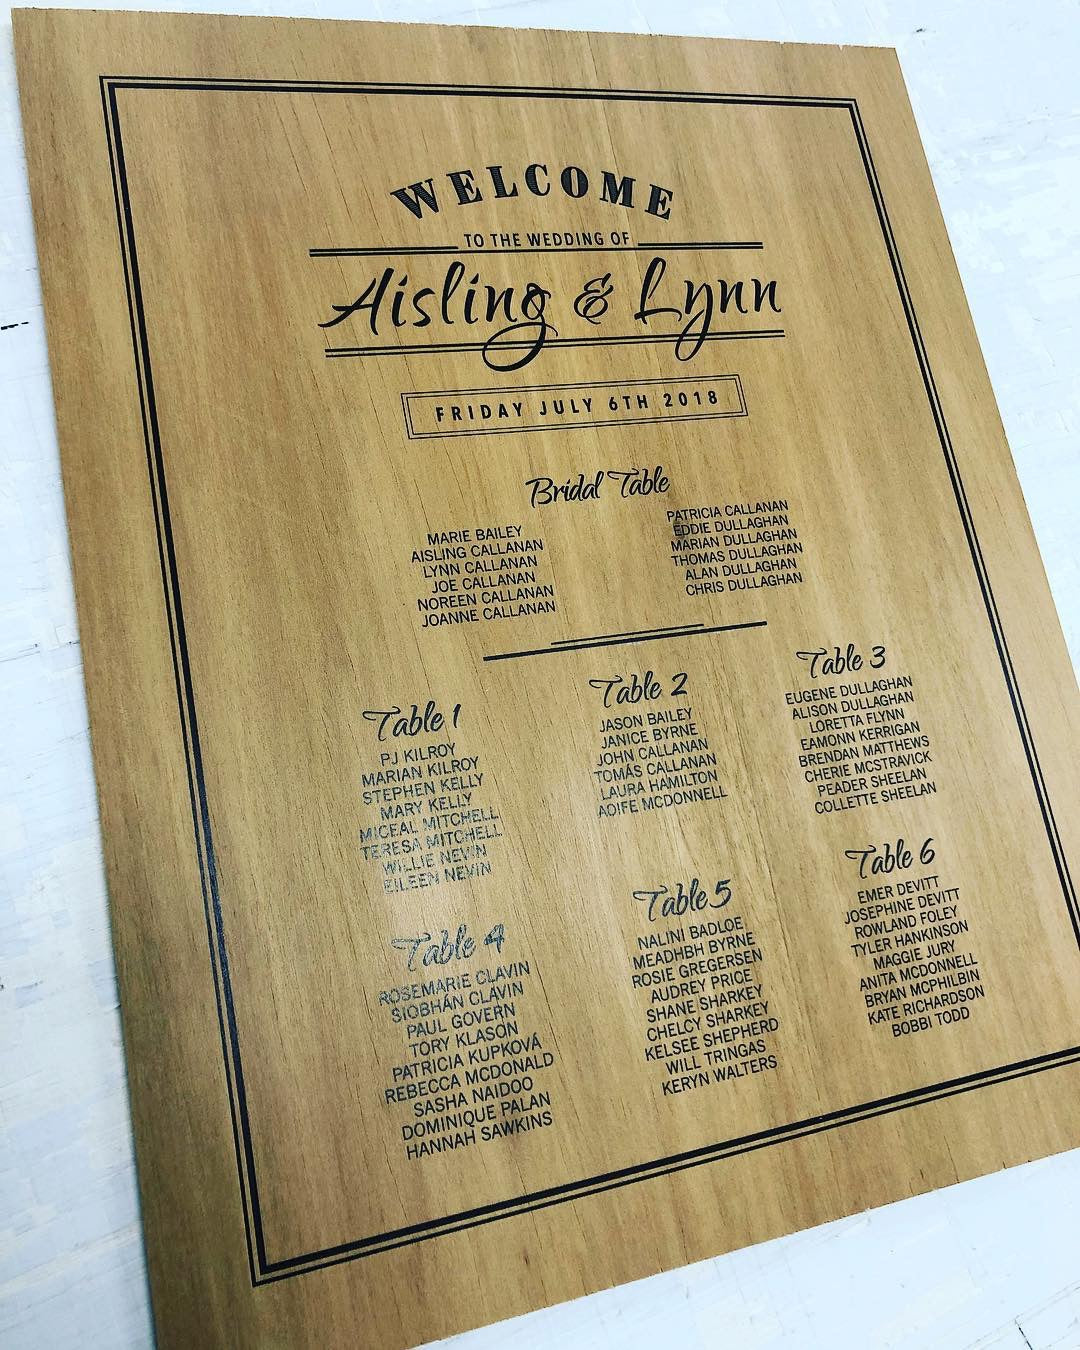 WELCOME
TO THE WEDDING OF
Aisling & Lynn
FRIDAY JULY 6TH 2018
Bridal Table
MARIE BAILEY
AISLING CALLANAN
LYNN CALLANAN
JOE CALLANAN
NOREEN CALLANAN
JOANNE CALLANAN
PATRICIA CALLANAN
EDDIE DULLAGHAN
MARIAN DULLAGHAN
THOMAS DULLAGHAN
ALAN DULLAGHAN
CHRIS DULLAGHAN
Table 1
PJ KILROY
MARIAN KILROY
STEPHEN KELLY
MARY KELLY
MICEAL MITCHELL
TERESA MITCHELL
WILLIE NEVIN
EILEEN NEVIN
Table 2
JASON BAILEY
JANICE BYRNE
JOHN CALLANAN
TOMÁS CALLANAN
LAURA HAMILTON
AOIFE MCDONNELL
Table 3
EUGENE DULLAGHAN
ALISON DULLAGHAN
LORETTA FLYNN
EAMONN KERRIGAN
BRENDAN MATTHEWS
CHERIE MCSTRAVICK
PEADER SHEELAN
COLLETTE SHEELAN
Table 4
ROSEMARIE CLAVIN
SIOBHÁN CLAVIN
PAUL GOVERN
TORY KLASON
PATRICIA KUPKOVÁ
REBECCA MCDONALD
SASHA NAIDOO
DOMINIQUE PALAN
HANNAH SAWKINS
Table 5
NALINI BADLOE
MEADHBH BYRNE
ROSIE GREGERSEN
AUDREY PRICE
SHANE SHARKEY
CHELCY SHARKEY
KELSEE SHEPHERD
WILL TRINGAS
KERYN WALTERS
Table 6
EMER DEVITT
JOSEPHINE DEVITT
ROWLAND FOLEY
TYLER HANKINSON
MAGGIE JURY
ANITA MCDONNELL
BRYAN MCPHILBIN
KATE RICHARDSON
BOBBI TODD